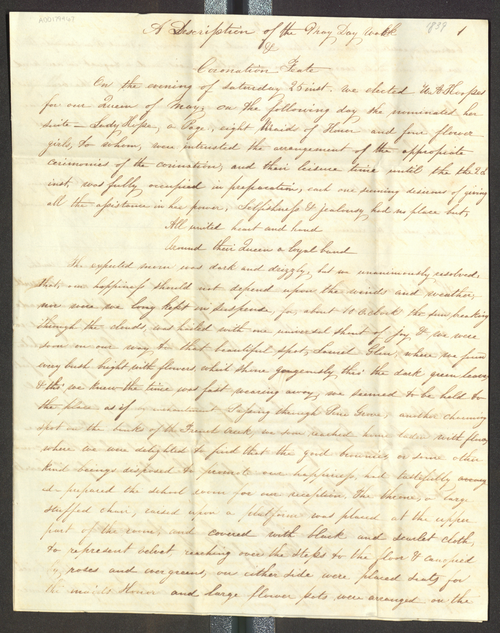 A Description of the May Day Walk 1839 1
&
Coronation Feate
On the evening of Saturday 25 inst. we elected M. B. Hooper
for our Queen of May; on the following day she nominated her
suite – Lady Hope, a Page, eight Maids of Honor and four flower
girls, to whom, were intrusted the arrangement of the appropriate
ceremonies of the coronation, and their leisure time until the 2d
inst, was fully occupied in preparation, each one seeming desirous of giving
all the assistance in her power, Selfishness & Jealousy, had no place but,
All united heart and hand
Around their Queen a loyal band
The expected morn was dark and drizzly, but we unanimously resolved
that, our happiness should not depend upon the winds and weather,
nor were we long kept in suspense, for, about 10 o,clock the sun peaking
through the clouds, was hailed with one universal shout of joy, & we were
soon on our way to that beautiful spot, Laurel Glen, where we found
every bush bright with flowers, which shone gorgeously, thro' the dark green leaves
& tho' we knew the time was fast wearing away, we seemed to be held to
the place as if by enchantment. Passing through Pine Grove, another charming
spot on the banks of the French Creek, we soon reached home laden with flowers
where we were delighted to find that the good brownies, or some other
kind beings disposed to promote our happiness, had tastefully arrang
ed & prepared the school room for our reception. The throne, a large
stuffed chair, raised upon a platform was placed at the upper
part of the room, and covered with black and scarlet cloth,
to represent velvet reaching over the steps to the floor & canopied
by roses and evergreens, on either side were placed seats for
the maids Honor and large flower pots were arranged on the